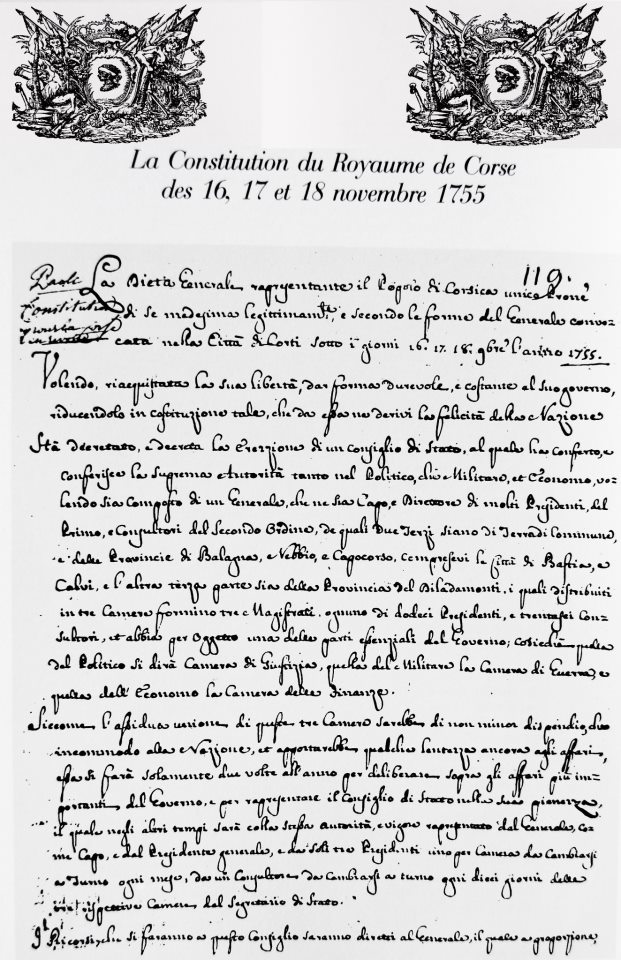 La Constitution du Royaume de Corse
des 16, 17 et 18 novembre 1755
119.
Paoli
La Dieta Generale rapresentante il Popolo di Corsica unico Prone
Constitution
di se medesimo legittimam.te, e secondo le forme del Generale convo-
cata nella Città di Corti sotto i giorni 16. 17. 18. 9bre l'anno 1755.
Volendo, riacquistata la sua libertà, dar forma durevole, e costante al suo governo,
riducendolo in costituzione tale, che da essa ne derivi la felicità della Nazione
Stà decretato, e decreta la Erezzione di un Consiglio di Stato, al quale ha conferto, e
conferisce la suprema Autorità tanto nel Politico, che Militare, et Economo, vo-
lendo sia composto di un Generale, che ne sia Capo, e Direttore di molti Presidenti, del
Primo, e Consultori del Secondo Ordine, de quali due Terzi siano di Terra di Commune,
e delle Provincie di Balagna, e Nebbio, e Capocorso, compresevi le Città di Bastia, e
Calvi, e l'altra terza parte sia della Provincia del Diladamonti, i quali distribuiti
in tre Camere formino tre Magistrati. ognuno di dodeci Presidenti, e trentasei Con-
sultori, et abbia per Oggetto una delle parti essenziali del Governo; cosicchè quella
del Politico si dirà Camera di Giustizia, quella del Militare la Camera di Guerra, e
quella dell'Economo la Camera delle Finanze.
Siccome l'assidua unione di queste tre Camere sarebbe di non minor dispendio, che
incommodo alla Nazione, et apportarebbe qualche lentezza ancora agli affari,
essa si farà solamente due volte all'anno per deliberare sopra gli affari più im-
portanti del Governo, e per rapresentare il Consiglio di Stato nella sua pienezza,
il quale negli altri tempi sarà colla stessa autorità, e vigore rapresentato dal Generale, co-
me Capo, e dal Presidente generale, e da soli tre Presidenti uno per Camera da cambiarsi
a turno ogni mese, da un Consultore da cambiarsi a turno ogni dieci giorni delle
rispettive Camere dal Segretario di Stato.
Ricorsi, che si faranno a questo Consiglio saranno diretti al Generale, il quale a proporzione,